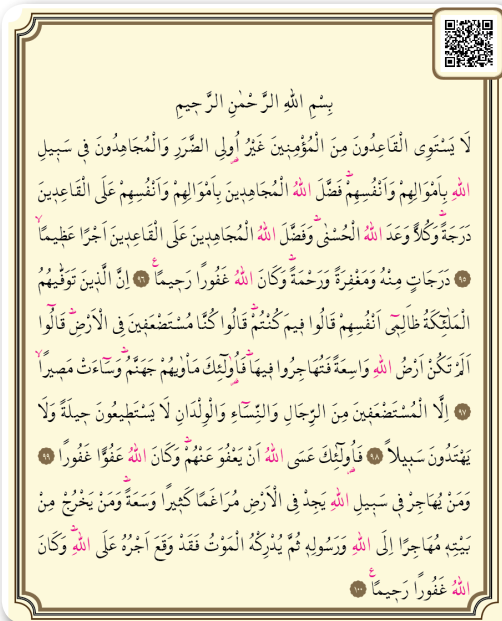 بِسْمِ اللهِ الرَّحْمٰنِ الرَّحٖيمِ
لَا يَسْتَوِى الْقَاعِدُونَ مِنَ الْمُؤْمِنٖينَ غَيْرُ اُولِى الضَّرَرِ وَالْمُجَاهِدُونَ فٖى سَبٖيلِ
اللهِ بِاَمْوَالِهِمْ وَاَنْفُسِهِمْؕ فَضَّلَ اللهُ الْمُجَاهِدٖينَ بِاَمْوَالِهِمْ وَاَنْفُسِهِمْ عَلَى الْقَاعِدٖينَ
دَرَجَةًؕ وَكُلًّا وَعَدَ اللهُ الْحُسْنٰىؕ وَفَضَّلَ اللهُ الْمُجَاهِدٖينَ عَلَى الْقَاعِدٖينَ اَجْرًا عَظٖيمًاۙ
٩٥ دَرَجَاتٍ مِنْهُ وَمَغْفِرَةً وَرَحْمَةًؕ وَكَانَ اللهُ غَفُورًا رَحٖيمًاࣖ ٩٦ اِنَّ الَّذٖينَ تَوَفّٰيهُمُ
الْمَلٰٓئِكَةُ ظَالِمٖٓى اَنْفُسِهِمْ قَالُوا فٖيمَ كُنْتُمْؕ قَالُوا كُنَّا مُسْتَضْعَفٖينَ فِى الْاَرْضِؕ قَالُٓوا
اَلَمْ تَكُنْ اَرْضُ اللهِ وَاسِعَةً فَتُهَاجِرُوا فٖيهَاؕ فَاُو۬لٰٓئِكَ مَاْوٰيهُمْ جَهَنَّمُؕ وَسَٓاءَتْ مَصٖيرًاۙ
٩٧ اِلَّا الْمُسْتَضْعَفٖينَ مِنَ الرِّجَالِ وَالنِّسَٓاءِ وَالْوِلْدَانِ لَا يَسْتَطٖيعُونَ حٖيلَةً وَلَا
يَهْتَدُونَ سَبٖيلًاۙ ٩٨ فَاُو۬لٰٓئِكَ عَسَى اللهُ اَنْ يَعْفُوَ عَنْهُمْؕ وَكَانَ اللهُ عَفُوًّا غَفُورًا ٩٩
وَمَنْ يُهَاجِرْ فٖى سَبٖيلِ اللهِ يَجِدْ فِى الْاَرْضِ مُرَاغَمًا كَثٖيرًا وَسَعَةًؕ وَمَنْ يَخْرُجْ مِنْ
بَيْتِهٖ مُهَاجِرًا اِلَى اللهِ وَرَسُولِهٖ ثُمَّ يُدْرِكْهُ الْمَوْتُ فَقَدْ وَقَعَ اَجْرُهُ عَلَى اللهِؕ وَكَانَ
اللهُ غَفُورًا رَحٖيمًاࣖ ١٠٠